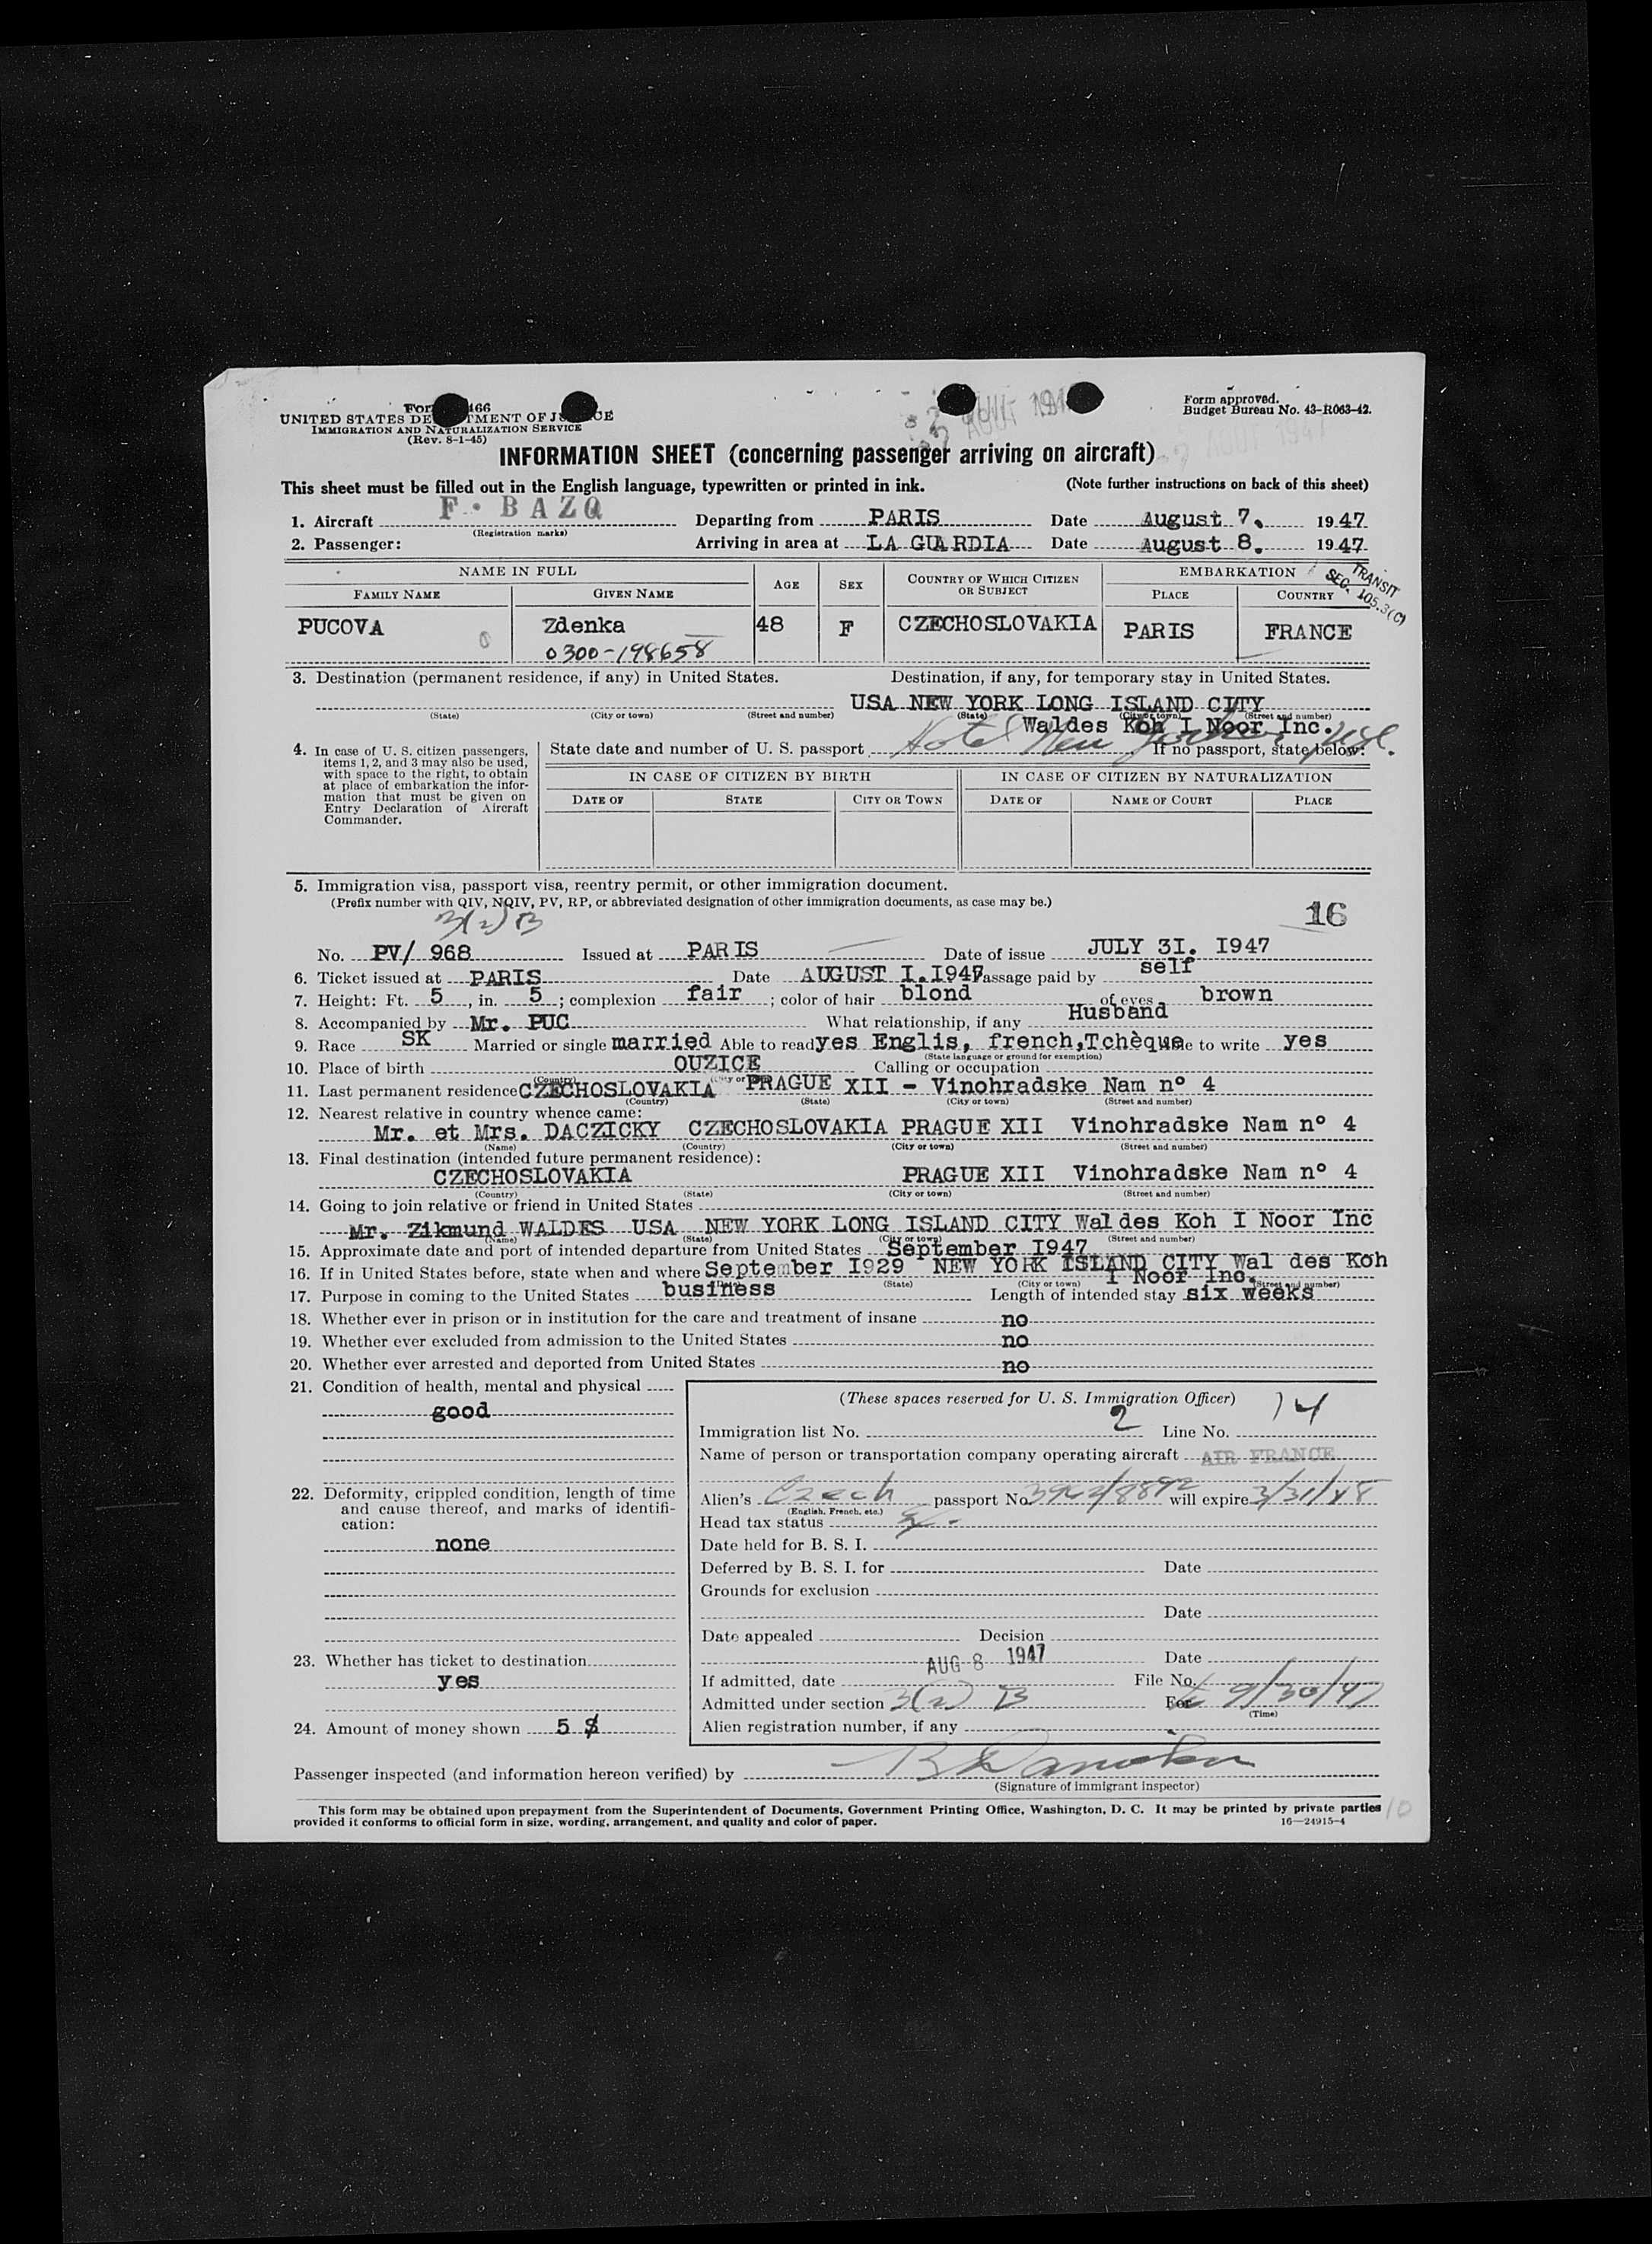 UNITED STATES DEPARTMENT OF JUSTICE
IMMIGRATION AND NATURALIZATION SERVICE
(Rev. 8-1-45)
Form approved.
Budget Bureau No. 43-R063-42.
INFORMATION SHEET (concerning passenger arriving on aircraft)
This sheet must be filled out in the English language, typewritten or printed in ink. (Note further instructions on back of this sheet)
1. Aircraft F·BAZQ Departing from PARIS Date August 7. 1947
(Registration marks)
2. Passenger: Arriving in area at LA GUARDIA Date August 8. 1947
TRANSIT
SEC. 105.3(C)
NAME IN FULL AGE SEX COUNTRY OF WHICH CITIZEN OR SUBJECT EMBARKATION
FAMILY NAME GIVEN NAME PLACE COUNTRY
PUCOVA Zdenka 48 F CZECHOSLOVAKIA PARIS FRANCE
0300-198658
3. Destination (permanent residence, if any) in United States. Destination, if any, for temporary stay in United States.
USA NEW YORK LONG ISLAND CITY
(State) (City or town) (Street and number) (State) (City or town) (Street and number)
Waldes Koh I Noor Inc.
Hotel New Yorker
4. In case of U. S. citizen passengers, items 1, 2, and 3 may also be used, with space to the right, to obtain at place of embarkation the information that must be given on Entry Declaration of Aircraft Commander.
State date and number of U. S. passport If no passport, state below:
IN CASE OF CITIZEN BY BIRTH IN CASE OF CITIZEN BY NATURALIZATION
DATE OF STATE CITY OR TOWN DATE OF NAME OF COURT PLACE
5. Immigration visa, passport visa, reentry permit, or other immigration document.
(Prefix number with QIV, NQIV, PV, RP, or abbreviated designation of other immigration documents, as case may be.)
3(2) B
16
No. PV/ 968 Issued at PARIS Date of issue JULY 3I. I947
6. Ticket issued at PARIS Date AUGUST I.I947 Passage paid by self
7. Height: Ft. 5, in. 5; complexion fair; color of hair blond of eyes brown
8. Accompanied by Mr. PUC What relationship, if any Husband
9. Race SK Married or single married Able to read yes Englis, french,Tchèque to write yes
(State language or ground for exemption)
10. Place of birth OUZICE Calling or occupation
(Country)
11. Last permanent residence CZECHOSLOVAKIA PRAGUE XII - Vinohradske Nam n° 4
(Country) (State) (City or town) (Street and number)
12. Nearest relative in country whence came:
Mr. et Mrs. DACZICKY CZECHOSLOVAKIA PRAGUE XII Vinohradske Nam n° 4
(Name) (Country) (City or town) (Street and number)
13. Final destination (intended future permanent residence):
CZECHOSLOVAKIA PRAGUE XII Vinohradske Nam n° 4
(Country) (State) (City or town) (Street and number)
14. Going to join relative or friend in United States
Mr. Zikmund WALDES USA NEW YORK LONG ISLAND CITY Waldes Koh I Noor Inc
(Name) (State) (City or town) (Street and number)
15. Approximate date and port of intended departure from United States September I947
16. If in United States before, state when and where September I929 NEW YORK ISLAND CITY Wal des Koh
I Noor Inc.
(State) (City or town) (Street and number)
17. Purpose in coming to the United States business Length of intended stay six weeks
18. Whether ever in prison or in institution for the care and treatment of insane no
19. Whether ever excluded from admission to the United States no
20. Whether ever arrested and deported from United States no
21. Condition of health, mental and physical
good
22. Deformity, crippled condition, length of time and cause thereof, and marks of identification:
none
23. Whether has ticket to destination
yes
24. Amount of money shown 5 $
(These spaces reserved for U. S. Immigration Officer)
Immigration list No. 2 Line No. 14
Name of person or transportation company operating aircraft AIR FRANCE
Alien's Czech passport No. will expire 3/31/48
(English, French, etc.)
Head tax status
Date held for B. S. I.
Deferred by B. S. I. for Date
Grounds for exclusion
Date
Date appealed Decision
AUG 8 1947 Date
If admitted, date File No.
Admitted under section 3(2) B For 9/30/47
(Time)
Alien registration number, if any
Passenger inspected (and information hereon verified) by
(Signature of immigrant inspector)
This form may be obtained upon prepayment from the Superintendent of Documents, Government Printing Office, Washington, D. C. It may be printed by private parties
provided it conforms to official form in size, wording, arrangement, and quality and color of paper. 16—24915-4